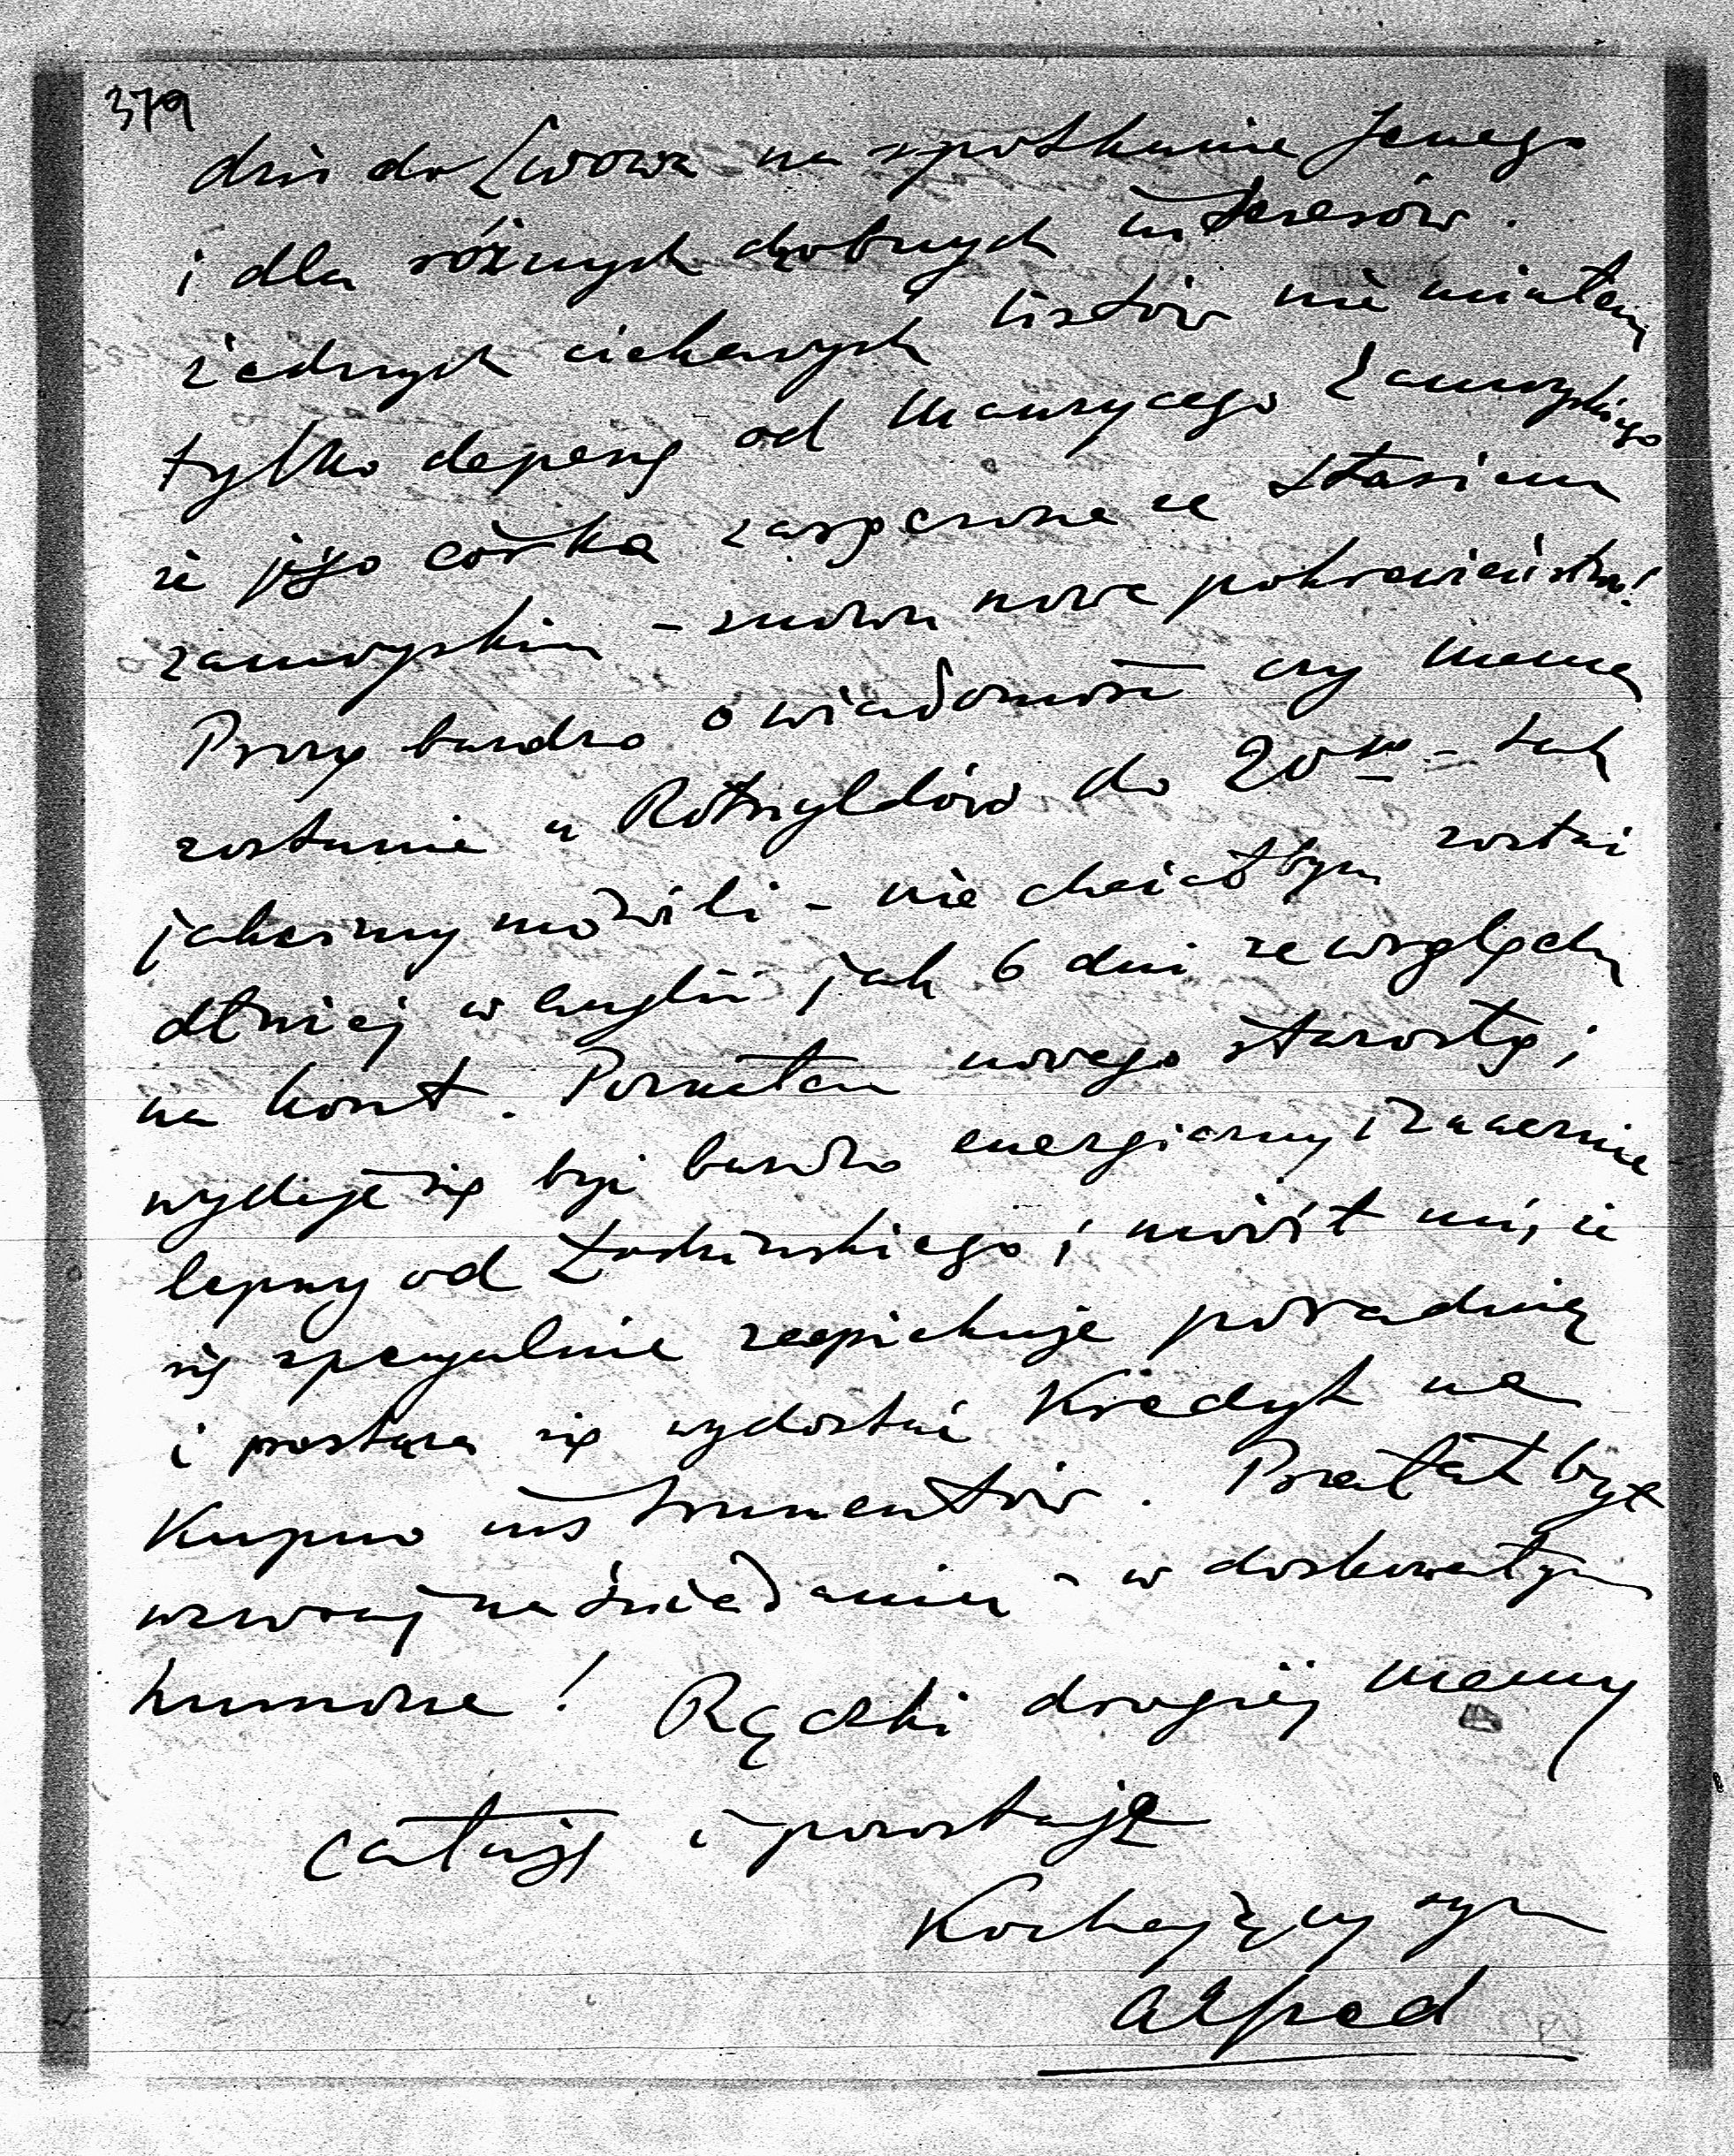 379
dziś do Lwowa na spotkanie Jenego
i dla różnych drobnych interesów.
żadnych ciekawych listów nie miałem
tylko depeszę od Maurycego Zamoyskiego
że jego córka zaręczona ze Stasiem
Zamoyskim – znowu nowe pokrewieństwo!
Proszę bardzo o wiadomość czy Mama
zostanie u Rotszyldów do 20go – tak
jakeśmy mówili – nie chciałbym zostać
dłużej w Anglii jak 6 dni ze względu
na koszt. Poznałem nowego starostę;
wydaje się być bardzo energiczny i znacznie
lepszy od; mówił mi, że
się specyalnie zaopiekuje poradnią
i postara się wydostać Kredyt na
Kupno instrumentów. Prałat był
wczoraj na śniadaniu – w doskonałym
humorze! Rączki drogiej Mamy
całuję i pozostaję
Kochający syn
Alfred